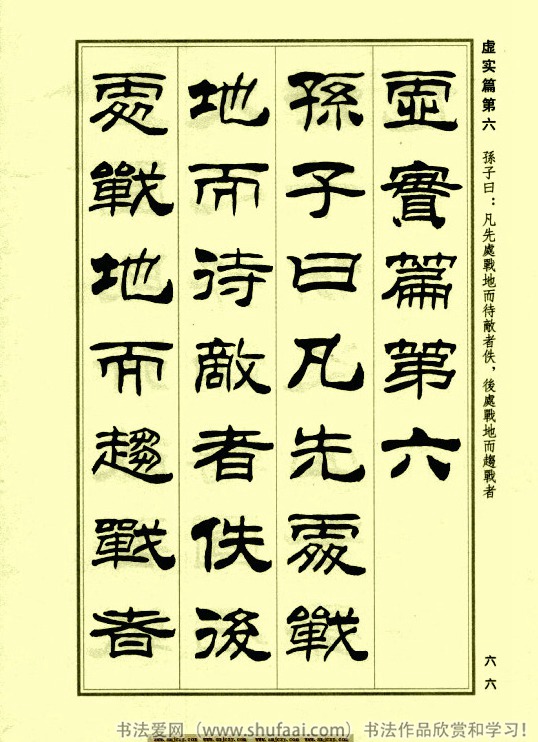 虚实篇第六 孫子曰：凡先處戰地而待敵者佚，後處戰地而趨戰者
虛實篇第六
孫子曰凡先處戰
地而待敵者佚後
處戰地而趨戰者
六六
书法爱网（www.shufaai.com）书法作品欣赏和学习！